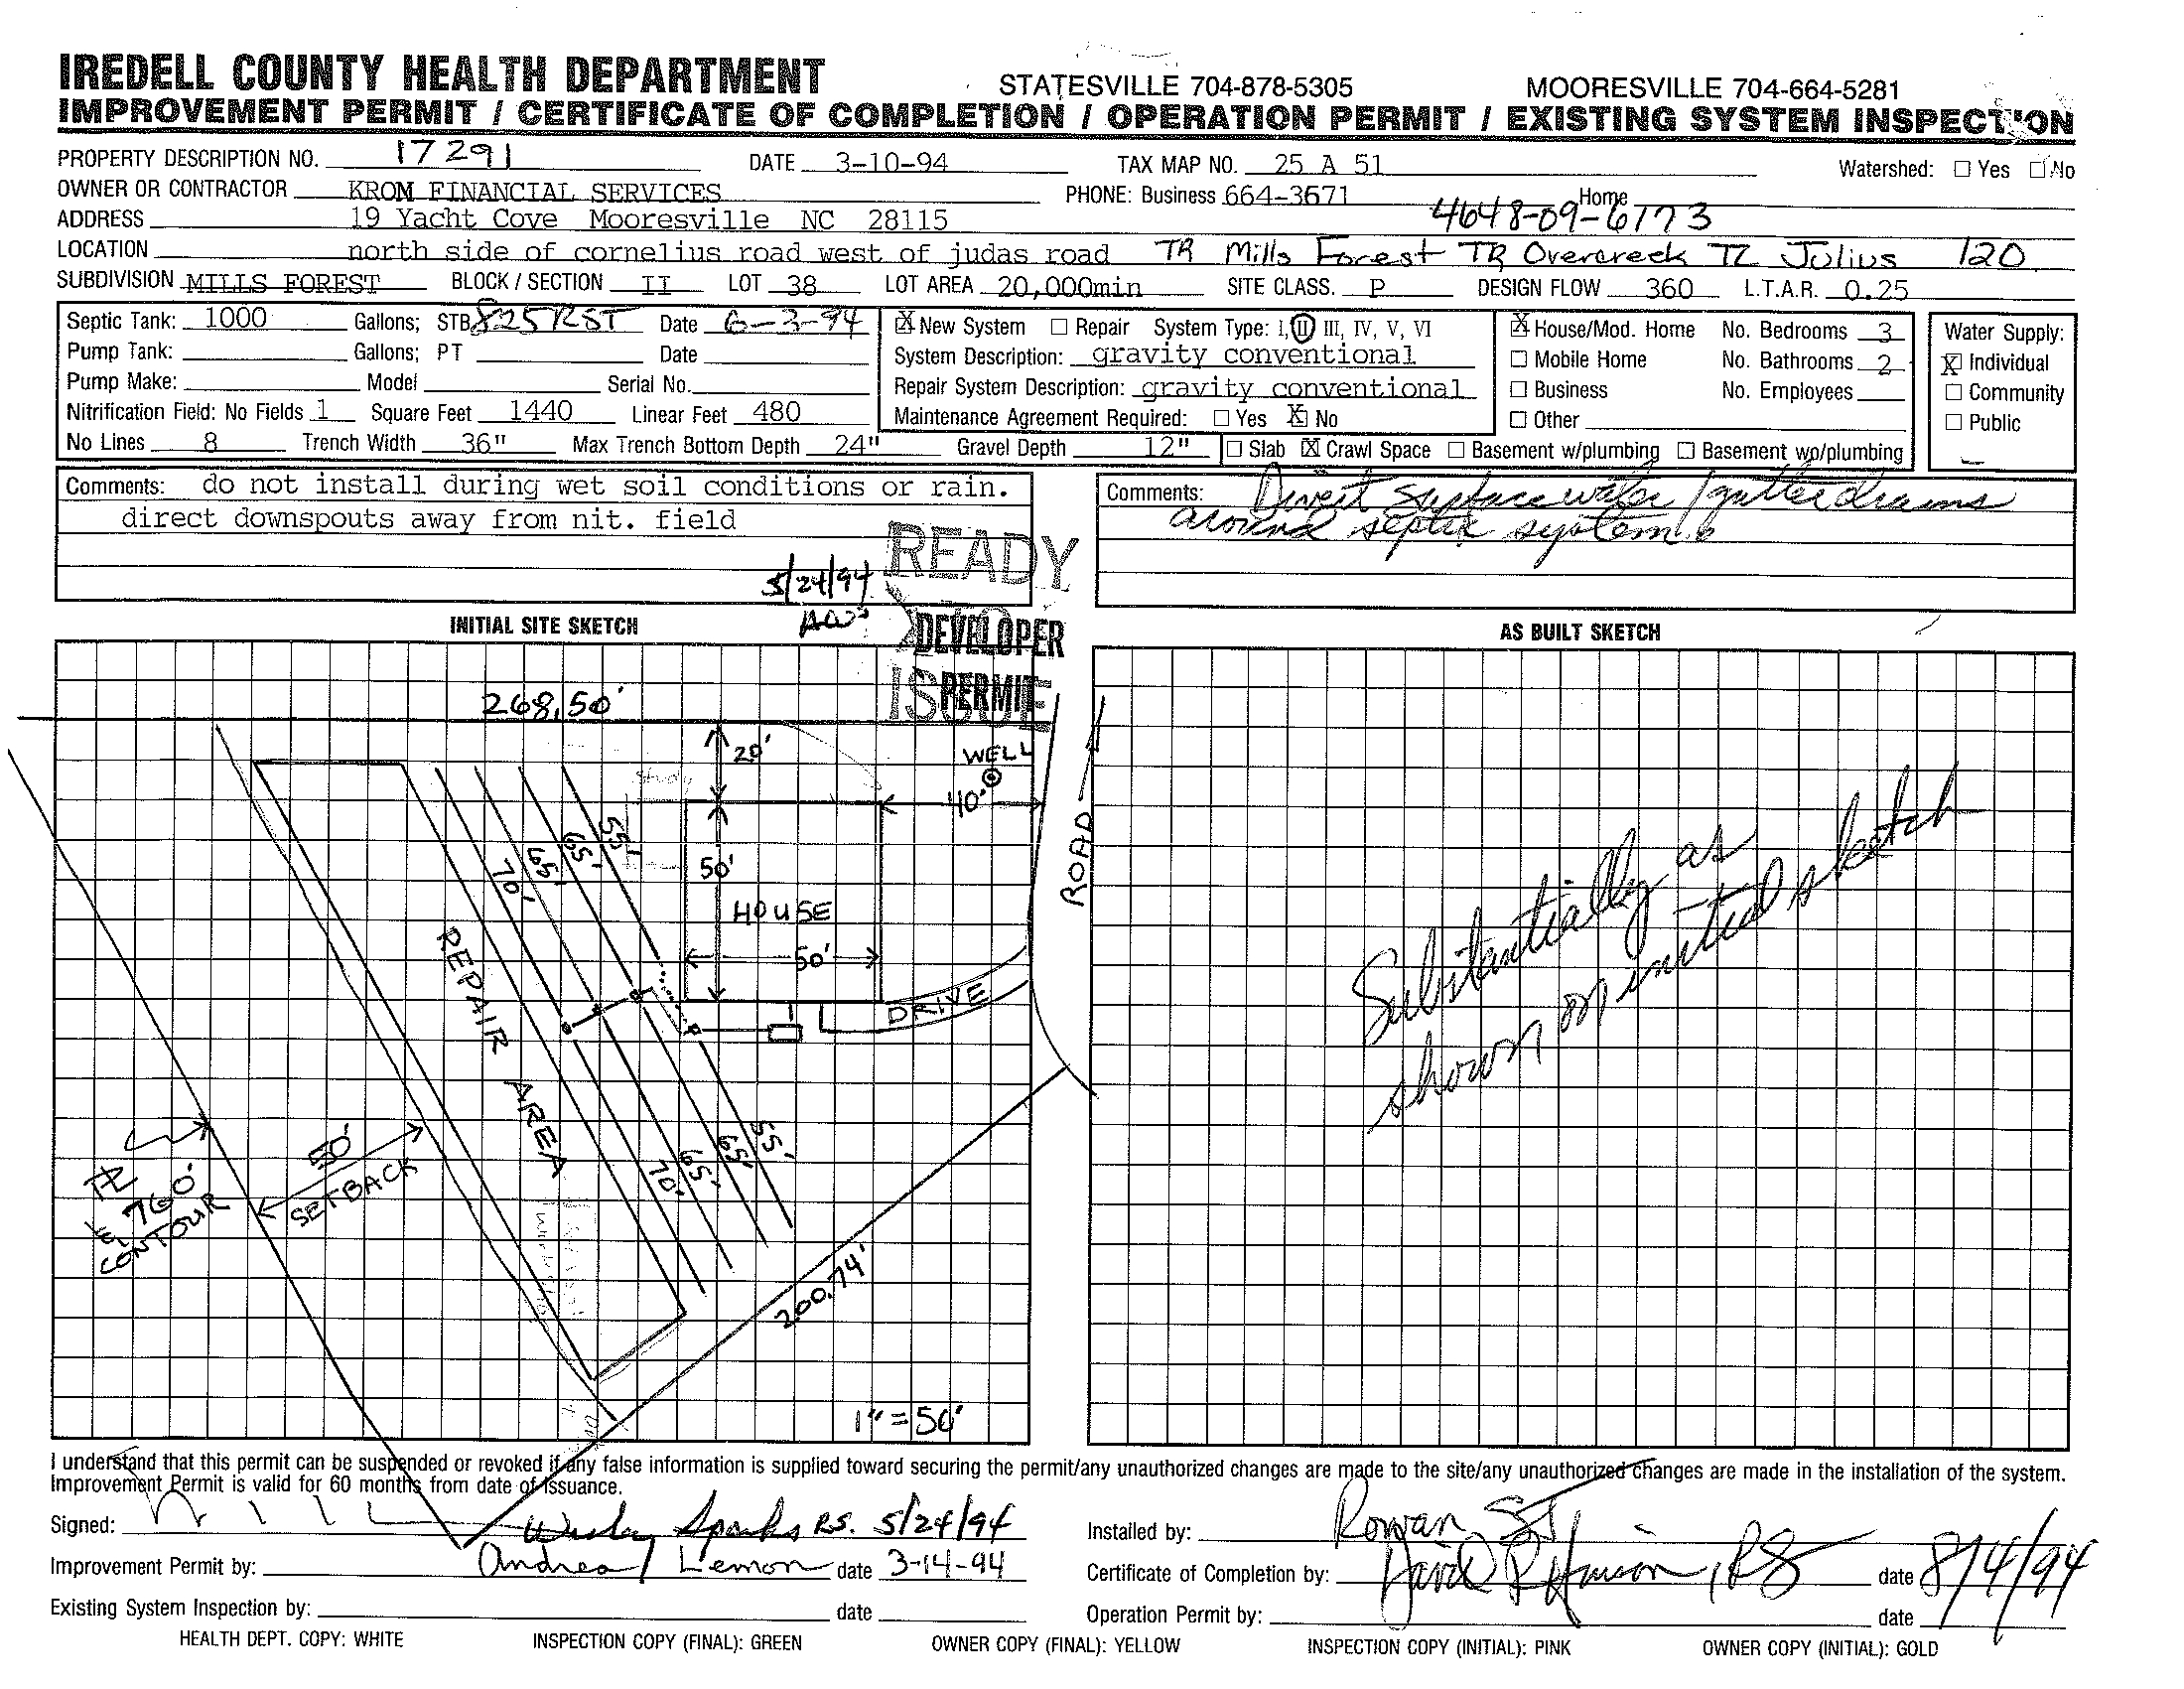 IREDELL COUNTY HEALTH DEPARTMENT STATESVILLE 704-878-5305 MOORESVILLE 704-664-5281
IMPROVEMENT PERMIT / CERTIFICATE OF COMPLETION / OPERATION PERMIT / EXISTING SYSTEM INSPECTION
PROPERTY DESCRIPTION NO. 17291 DATE 3-10-94 TAX MAP NO. 25 A 51 Watershed: ☐ Yes ☐ No
OWNER OR CONTRACTOR KROM FINANCIAL SERVICES PHONE: Business 664-3671 Home
ADDRESS 19 Yacht Cove Mooresville NC 28115 4648-09-6173
LOCATION north side of cornelius road west of judas road TR Mills Forest TR Overcreek TL Julius 120
SUBDIVISION MILLS FOREST BLOCK / SECTION II LOT 38 LOT AREA 20,000min SITE CLASS. P DESIGN FLOW 360 L.T.A.R. 0.25
Septic Tank: 1000 Gallons; STB 825 RST Date 6-3-94
Pump Tank: Gallons; PT Date
Pump Make: Model Serial No.
Nitrification Field: No Fields 1 Square Feet 1440 Linear Feet 480
No Lines 8 Trench Width 36" Max Trench Bottom Depth 24" Gravel Depth 12"
☒ New System ☐ Repair System Type: I, II, III, IV, V, VI
System Description: gravity conventional
Repair System Description: gravity conventional
Maintenance Agreement Required: ☐ Yes ☒ No
☐ Slab ☒ Crawl Space ☐ Basement w/plumbing ☐ Basement wo/plumbing
☒ House/Mod. Home No. Bedrooms 3
☐ Mobile Home No. Bathrooms 2
☐ Business No. Employees
☐ Other
Water Supply:
☒ Individual
☐ Community
☐ Public
Comments: do not install during wet soil conditions or rain.
direct downspouts away from nit. field
5/24/94
AWS
READY
TO
ISSUE
DEVELOPER
PERMIT
Comments: Divert surface water / gutter drains
around septic system.
INITIAL SITE SKETCH
268.50'
20'
WELL
study
40'
ROAD
55'
65'
65'
70'
50'
HOUSE
50'
DRIVE
REPAIR AREA
PL
760'
CONTOUR
50'
SETBACK
55'
65'
65'
70'
200.74'
1" = 50'
AS BUILT SKETCH
Substantially as
shown on initial sketch
I understand that this permit can be suspended or revoked if any false information is supplied toward securing the permit/any unauthorized changes are made to the site/any unauthorized changes are made in the installation of the system.
Improvement Permit is valid for 60 months from date of issuance.
Signed: Wesley Sparks RS. 5/24/94
Improvement Permit by: Andrea Lemon date 3-14-94
Existing System Inspection by: date
Installed by: Rowan ST
Certificate of Completion by: David , RS date 8/4/94
Operation Permit by: date
HEALTH DEPT. COPY: WHITE INSPECTION COPY (FINAL): GREEN OWNER COPY (FINAL): YELLOW INSPECTION COPY (INITIAL): PINK OWNER COPY (INITIAL): GOLD